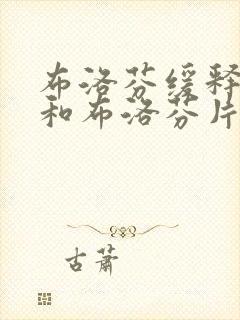 布洛芬缓释
和布洛芬片
古萧